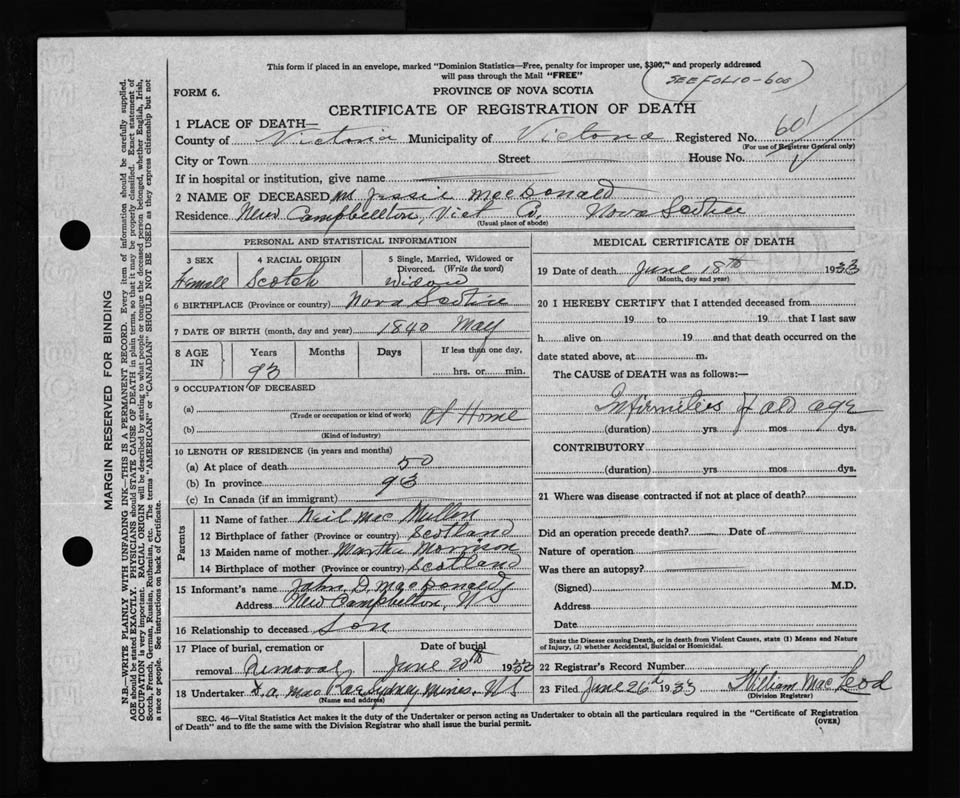 This form if placed in an envelope, marked "Dominion Statistics—Free, penalty for improper use, $300," and properly addressed
will pass through the Mail "FREE"
SEE FOLIO-600
FORM 6.
PROVINCE OF NOVA SCOTIA
CERTIFICATE OF REGISTRATION OF DEATH
1 PLACE OF DEATH—
County of Victoria Municipality of Victoria Registered No. 601
(For use of Registrar General only)
City or Town Street House No.
If in hospital or institution, give name
2 NAME OF DECEASED Jessie MacDonald
Residence New Campbellton, Vict Co. Nova Scotia
(Usual place of abode)
PERSONAL AND STATISTICAL INFORMATION
3 SEX 4 RACIAL ORIGIN 5 Single, Married, Widowed or Divorced. (Write the word)
Female Scotch Widow
6 BIRTHPLACE (Province or country) Nova Scotia
7 DATE OF BIRTH (month, day and year) 1840 May
8 AGE IN Years Months Days If less than one day,
93 hrs. or min.
9 OCCUPATION OF DECEASED
(a) At Home
(Trade or occupation or kind of work)
(b)
(Kind of industry)
10 LENGTH OF RESIDENCE (in years and months)
(a) At place of death 50
(b) In province 93
(c) In Canada (if an immigrant)
Parents
11 Name of father Neil Mac Mullen
12 Birthplace of father (Province or country) Scotland
13 Maiden name of mother Martha Morrison
14 Birthplace of mother (Province or country) Scotland
15 Informant's name John D. MacDonald
Address New Campbellton, N S
16 Relationship to deceased Son
17 Place of burial, cremation or removal Removal
Date of burial June 20th 1933
18 Undertaker A. Mac Rae Sydney Mines, N S
(Name and address)
MEDICAL CERTIFICATE OF DEATH
19 Date of death June 18th 1933
(Month, day and year)
20 I HEREBY CERTIFY that I attended deceased from
19 to 19 that I last saw
h alive on 19 and that death occurred on the
date stated above, at m.
The CAUSE of DEATH was as follows:—
Infirmities of old age
(duration) yrs mos dys.
CONTRIBUTORY
(duration) yrs mos dys.
21 Where was disease contracted if not at place of death?
Did an operation precede death? Date of
Nature of operation
Was there an autopsy?
(Signed) M.D.
Address
Date
State the Disease causing Death, or in death from Violent Causes, state (1) Means and Nature
of Injury, (2) whether Accidental, Suicidal or Homicidal.
22 Registrar's Record Number
23 Filed June 26d 1933 William Mac Leod
(Division Registrar)
SEC. 46—Vital Statistics Act makes it the duty of the Undertaker or person acting as Undertaker to obtain all the particulars required in the "Certificate of Registration
of Death" and to file the same with the Division Registrar who shall issue the burial permit.
(OVER)
MARGIN RESERVED FOR BINDING
N.B.—WRITE PLAINLY WITH UNFADING INK—THIS IS A PERMANENT RECORD. Every item of information should be carefully supplied.
AGE should be stated EXACTLY. PHYSICIANS should STATE CAUSE OF DEATH in plain terms, so that it may be properly classified. Exact statement of
OCCUPATION is very important. RACIAL ORIGIN will be described by stating to what people or tongue the deceased person belonged, whether English, Irish,
Scotch, French, German, Russian, Ruthenian, etc. The terms "AMERICAN" or "CANADIAN" SHOULD NOT BE USED as they express citizenship but not
a race or people. See instructions on back of Certificate.